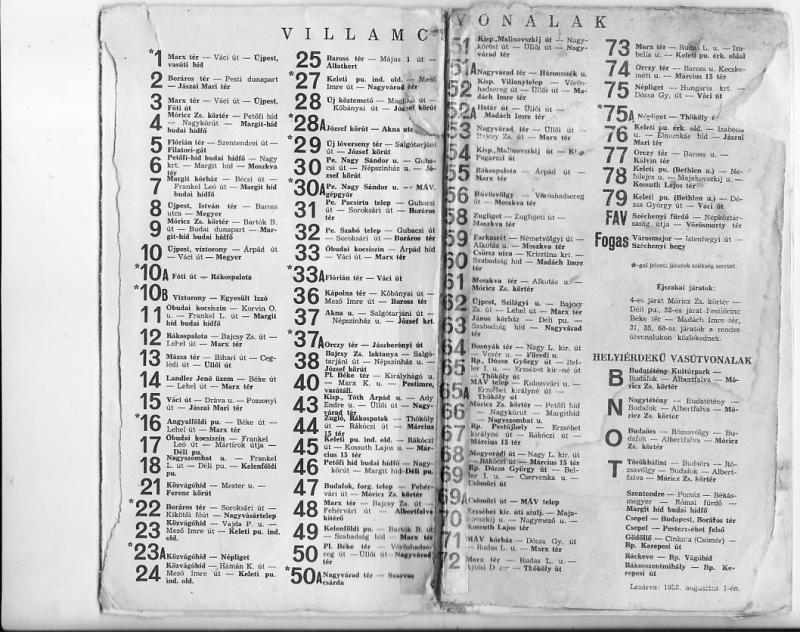 VILLAMOSVONALAK
*1 Marx tér — Váci út — Újpest,
vasúti híd
2 Boráros tér — Pesti dunapart
— Jászai Mari tér
3 Marx tér — Váci út — Újpest,
Fóti út
4 Móricz Zs. körtér — Petőfi híd
— Nagykörút — Margit-híd
budai hídfő
5 Flórián tér — Szentendrei út —
Filatori-gát
6 Petőfi-híd budai hídfő — Nagy
krt. — Margit híd — Moszkva
tér
7 Margit kórház — Bécsi út —
Frankel Leó út — Margit híd
budai hídfő
8 Újpest, István tér — Baross
utca — Megyer
9 Móricz Zs. körtér — Bartók B.
út — Budai dunapart — Mar-
git-híd budai hídfő
10 Újpest, víztorony — Árpád út
— Váci út — Megyer
*10A Fóti út — Rákospalota
*10B Víztorony — Egyesült Izzó
11 Óbudai kocsiszín — Korvin O.
u. — Frankel L. út — Margit
híd budai hídfő
12 Rákospalota — Bajcsy Zs. út —
Lehel út — Marx tér
13 Mázsa tér — Bihari út — Ceg-
lédi út — Üllői út
14 Landler Jenő üzem — Béke út
— Lehel út — Marx tér
15 Váci út — Dráva u. — Pozsonyi
út — Jászai Mari tér
*16 Angyalföldi pu. — Béke út —
Lehel út — Marx tér
17 Óbudai kocsiszín — Frankel
Leó út — Mártírok útja —
Déli pu.
18 Nagyszombat u. — Frankel
L. út — Déli pu. — Kelenföldi
pu.
21 Közvágóhíd — Mester u. —
Ferenc körút
*22 Boráros tér — Soroksári út —
Kikötői főút — Nagyvásártelep
23 Közvágóhíd — Vajda P. u. —
Mező Imre út — Keleti pu. ind.
old.
*23A Közvágóhíd — Népliget
24 Közvágóhíd — Hámán K. út —
Mező Imre út — Keleti pu.
ind. old.
25 Baross tér — Május 1 út —
Állatkert
*27 Keleti pu. ind. old. — Mező
Imre út — Nagyvárad tér
28 Új köztemető — Maglódi út —
Kőbányai út — József körút
*28A József körút — Akna utca
*29 Új lóverseny tér — Salgótarjáni
út — József körút
30 Pe. Nagy Sándor u. — Guba-
csi út — Népszínház u. — Jó-
zsef körút
*30A Pe. Nagy Sándor u. — MÁV.
gépgyár
31 Pe. Pacsirta telep — Gubacsi
út — Soroksári út — Boráros
tér
32 Pe. Szabó telep — Gubacsi út
— Soroksári út — Boráros tér
33 Óbudai kocsiszín — Árpád híd
— Váci út — Marx tér
*33A Flórián tér — Váci út
36 Kápolna tér — Kőbányai út —
Mező Imre út — Baross tér
37 Akna u. — Salgótarjáni út —
Népszínház u. — József krt.
*37A Orczy tér — Jászberényi út
38 Bajcsy Zs. laktanya — Salgó-
tarjáni út — Népszínház u. —
József körút
40 Pl. Béke tér — Királyhágó u.
— Marx K. u. — Pestimre,
vasútáll.
43 Kisp., Tóth Árpád u. — Ady
Endre u. — Üllői út — Nagy-
várad tér
44 Zugló, Rákospatak — Thököly
út — Rákóczi út — Március
15 tér
45 Keleti pu. ind. old. — Rákóczi
út — Kossuth Lajos u. — Már-
cius 15 tér
46 Petőfi híd budai hídfő — Nagy-
körút — Margit híd — Déli pu.
47 Budafok, forg. telep — Fehér-
vári út — Móricz Zs. körtér
48 Marx tér — Bajcsy Zs. út —
Fehérvári út — Albertfalva
kitérő
49 Kelenföldi pu. — Bartók B. út
— Szabadság híd — Marx tér
50 Pl. Béke tér — Vöröshadse-
reg út — Üllői út — Nagyvárad
tér
*50A Nagyvárad tér — Szarvas
csárda
51 Kisp., Malinovszkij út — Nagy-
kőrösi út — Üllői út — Nagy-
várad tér
51A Nagyvárad tér —Háromszék u.
52 Kisp. Villanytelep — Vörös-
hadsereg út — Üllői út — Ma-
dách Imre tér
52A Határ út — Üllői út —
Madách Imre tér
53 Nagyvárad tér — Üllői út —
Bajcsy Zs. út — Marx tér
54 Kisp., Malinovszkij út — Kisp.
Fogarasi út
55 Rákospalota — Árpád út —
Marx tér
56 Hűvösvölgy — Vöröshadsereg
út — Moszkva tér
58 Zugliget — Zugligeti út —
Moszkva tér
59 Farkasrét — Németvölgyi út —
Alkotás u. — Moszkva tér
60 Csörsz utca — Krisztina krt. —
Szabadság híd — Madách Imre
tér
61 Moszkva tér — Alkotás u. —
Móricz Zs. körtér
62 Újpest, Szilágyi u. — Bajcsy
Zs. út — Lehel út — Marx tér
63 János kórház — Déli pu. —
Szabadság híd — Nagyvárad
tér
64 Bosnyák tér — Nagy L. kir. út
— Vezér u. — Füredi u.
65 Rp., Dózsa György út — Bel-
ler I. u. — Erzsébet kir-né út
— Thököly út
65A MÁV telep — Kolozsvári u. —
Erzsébet királyné út —
Thököly út
66 Móricz Zs. körtér — Petőfi híd
— Nagykörút — Margithíd
— Nagyszombat u.
67 Rp. Pestújhely — Erzsébet
királyné út — Rákóczi út —
Március 15 tér
68 Mogyoródi út — Nagy L. kir.
út — Rákóczi út — Március 15 tér
69 Rp. Dózsa György út — Bel-
ler I. u. — Cservenka u. —
Csömöri út
69A Csömöri út — MÁV telep
70 Erzsébet kir. úti alulj. — Maja-
kovszkij u. — Nagymező u. —
Kossuth Lajos tér
71 MÁV kórház — Dózsa Gy. út
— Rudas L. u. — Marx tér
72 Marx tér — Rudas L. u. —
Ajtósi D. sor — Thököly út
73 Marx tér — Rudas L. u. — Iza-
bella u. — Keleti pu. érk. oldal
74 Orczy tér — Baross u. Kecske-
méti u. — Március 15 tér
75 Népliget — Hungária krt. —
Dózsa Gy. út — Váci út
*75A Népliget — Thököly út
76 Keleti pu. érk. old. — Izabella
u. — Élmunkás híd — Jászai
Mari tér
77 Orczy tér — Baross u. —
Kálvin tér
78 Keleti pu. (Bethlen u.) — Ne-
felejcs u. — Majakovszkij u. —
Kossuth Lajos tér
79 Keleti pu. (Bethlen u.) — Dó-
zsa György út — Váci út
FAV Széchenyi fürdő — Népköztár-
saság útja — Vörösmarty tér
Fogas Városmajor — Istenhegyi út —
Széchenyi hegy
*-gal jelzet: járatok szükség szerint.
Éjszakai járatok:
4-es járat Móricz Zs. körtér —
Déli pu., 52-es járat Pestlőrinc
Béke tér — Madách Imre tér,
31, 55, 68-as járatok a rendes
útvonalukon közlekednek.
HELYIÉRDEKŰ VASÚTVONALAK
B Budatétény Kultúrpark —
Budafok — Albertfalva — Mó-
ricz Zs. körtér
N Nagytétény — Budatétény —
Budafok — Albertfalva — Mó-
ricz Zs. körtér
O Budaörs — Rózsavölgy — Bu-
dafok — Albertfalva — Móricz
Zs. körtér
T Törökbálint — Budaörs — Ró-
zsavölgy — Budafok — Albert-
falva — Móricz Zs. körtér
Szentendre — Pomáz — Békás-
megyer — Római fürdő —
Margit híd budai hídfő
Csepel — Budapest, Boráros tér
Csepel — Pesterzsébet felső
Gödöllő — Cinkota (Csömör) —
Bp. Kerepesi út
Ráckeve — Bp. Vágóhíd
Rákosszentmihály — Bp. Ke-
repesi út
Lezárva: 1958. augusztus 1-én.